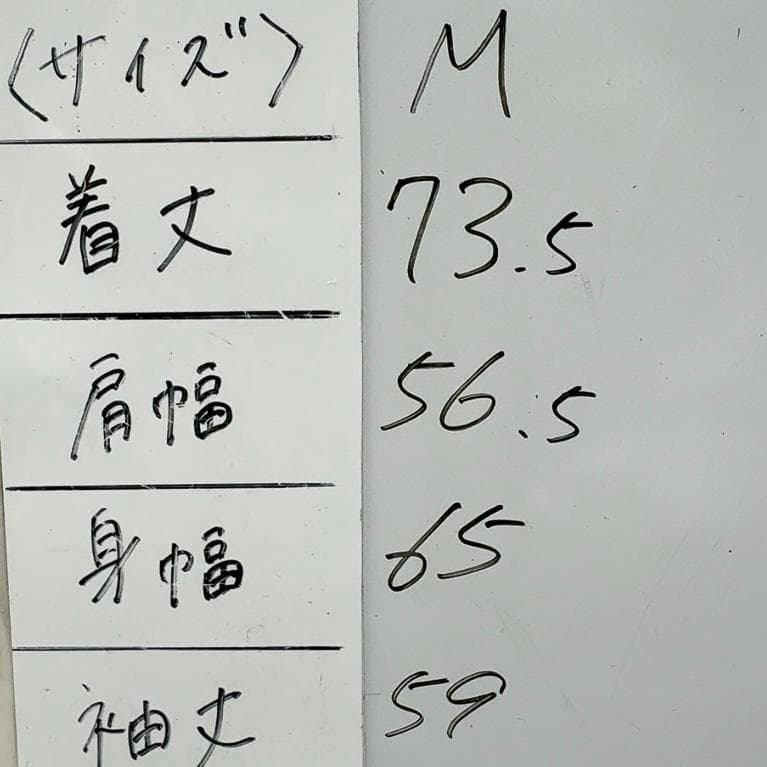 〈サイズ〉 M
着丈 73.5
肩幅 56.5
身幅 65
袖丈 59